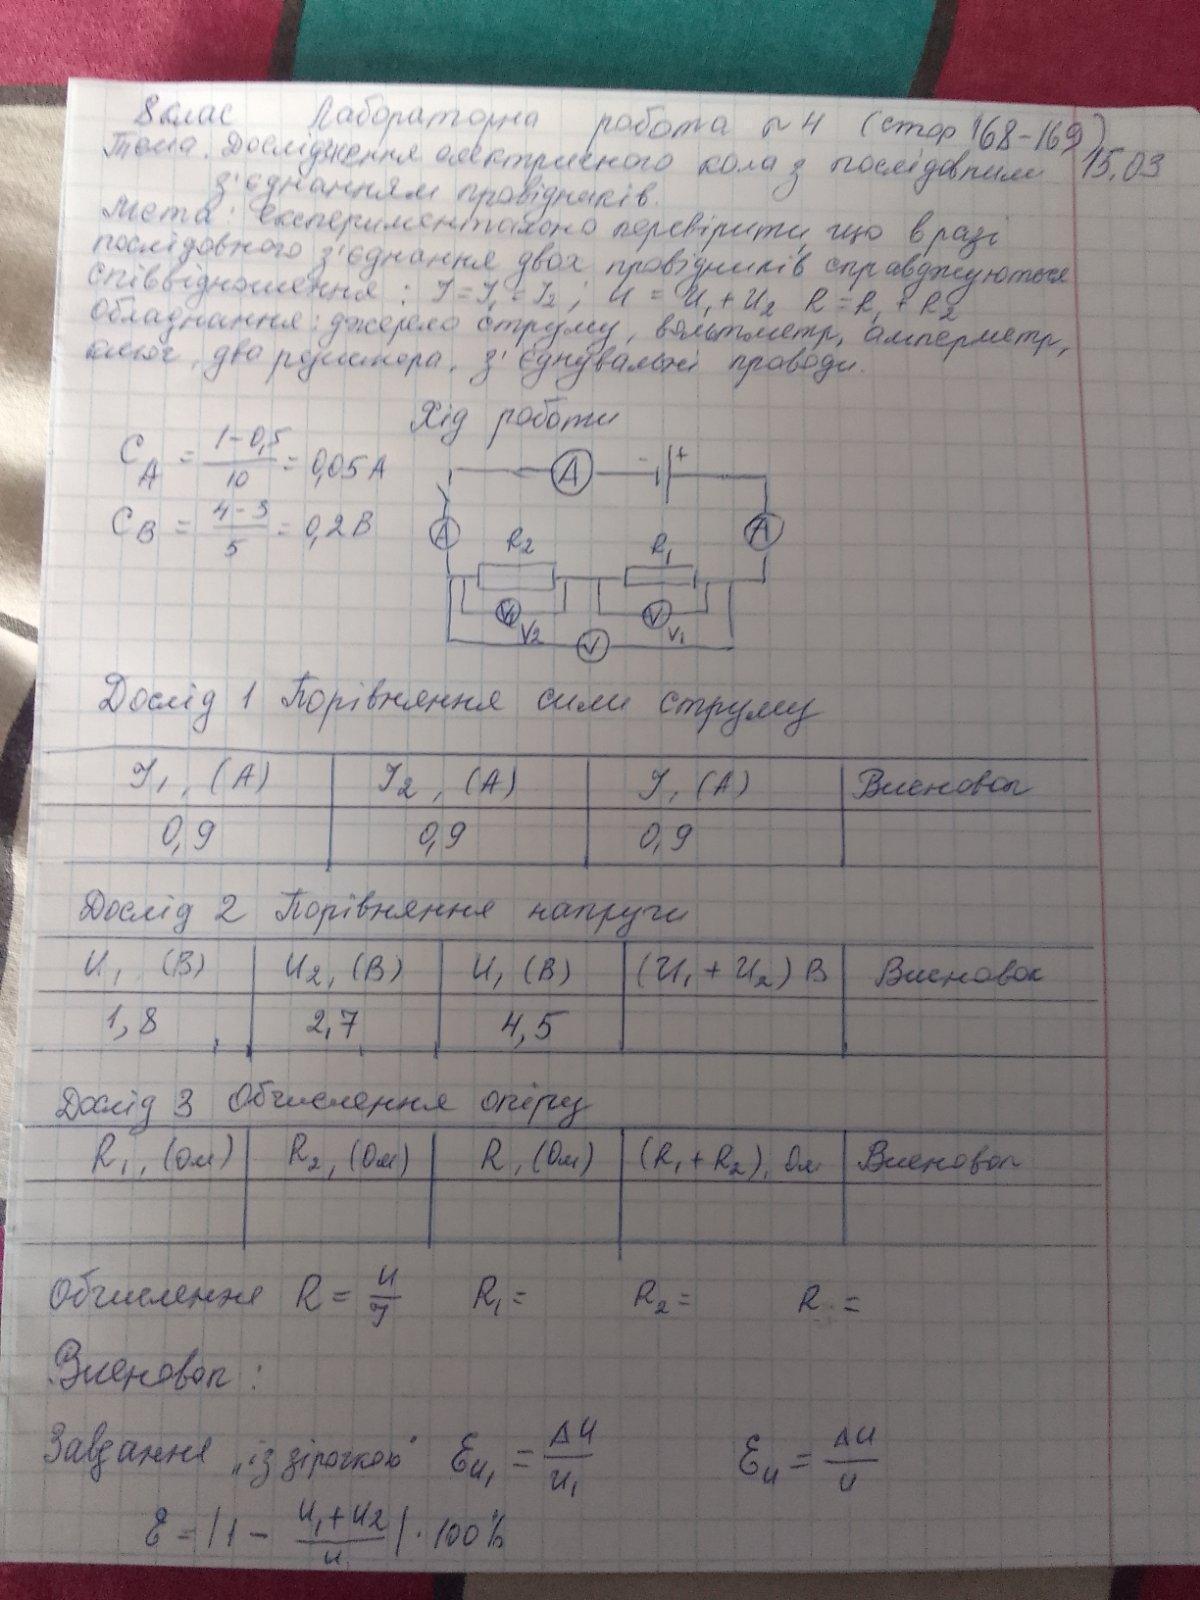 8 клас Лабораторна робота №4 (стор 168-169)
Тема. Дослідження електричного кола з послідовним 15.03
з'єднанням провідників.
Мета: експериментально перевірити, що в разі
послідовного з'єднання двох провідників справджуються
співвідношення: I = I₁ = I₂; U = U₁ + U₂ R = R₁ + R₂
Обладнання: джерело струму, вольтметр, амперметр,
ключ, два резистора, з'єднувальні проводи.
Хід роботи
C_A = (1-0,5)/10 = 0,05 А
C_B = (4-3)/5 = 0,2 В
A - +
A A
R₂ R₁
V₂ V₁
V
Дослід 1 Порівняння сили струму
I₁, (А) I₂, (А) I, (А) Висновок
0,9 0,9 0,9
Дослід 2 Порівняння напруги
U₁ (В) U₂, (В) U, (В) (U₁ + U₂) В Висновок
1,8 2,7 4,5
Дослід 3 Обчислення опіру
R₁, (Ом) R₂, (Ом) R, (Ом) (R₁ + R₂), Ом Висновок
Обчислення R = U/I R₁ = R₂ = R =
Висновок:
Завдання „із зірочкою" ℰ_U₁ = ΔU/U₁ ℰ_U = ΔU/U
ℰ = |1 - (U₁+U₂)/U| · 100%